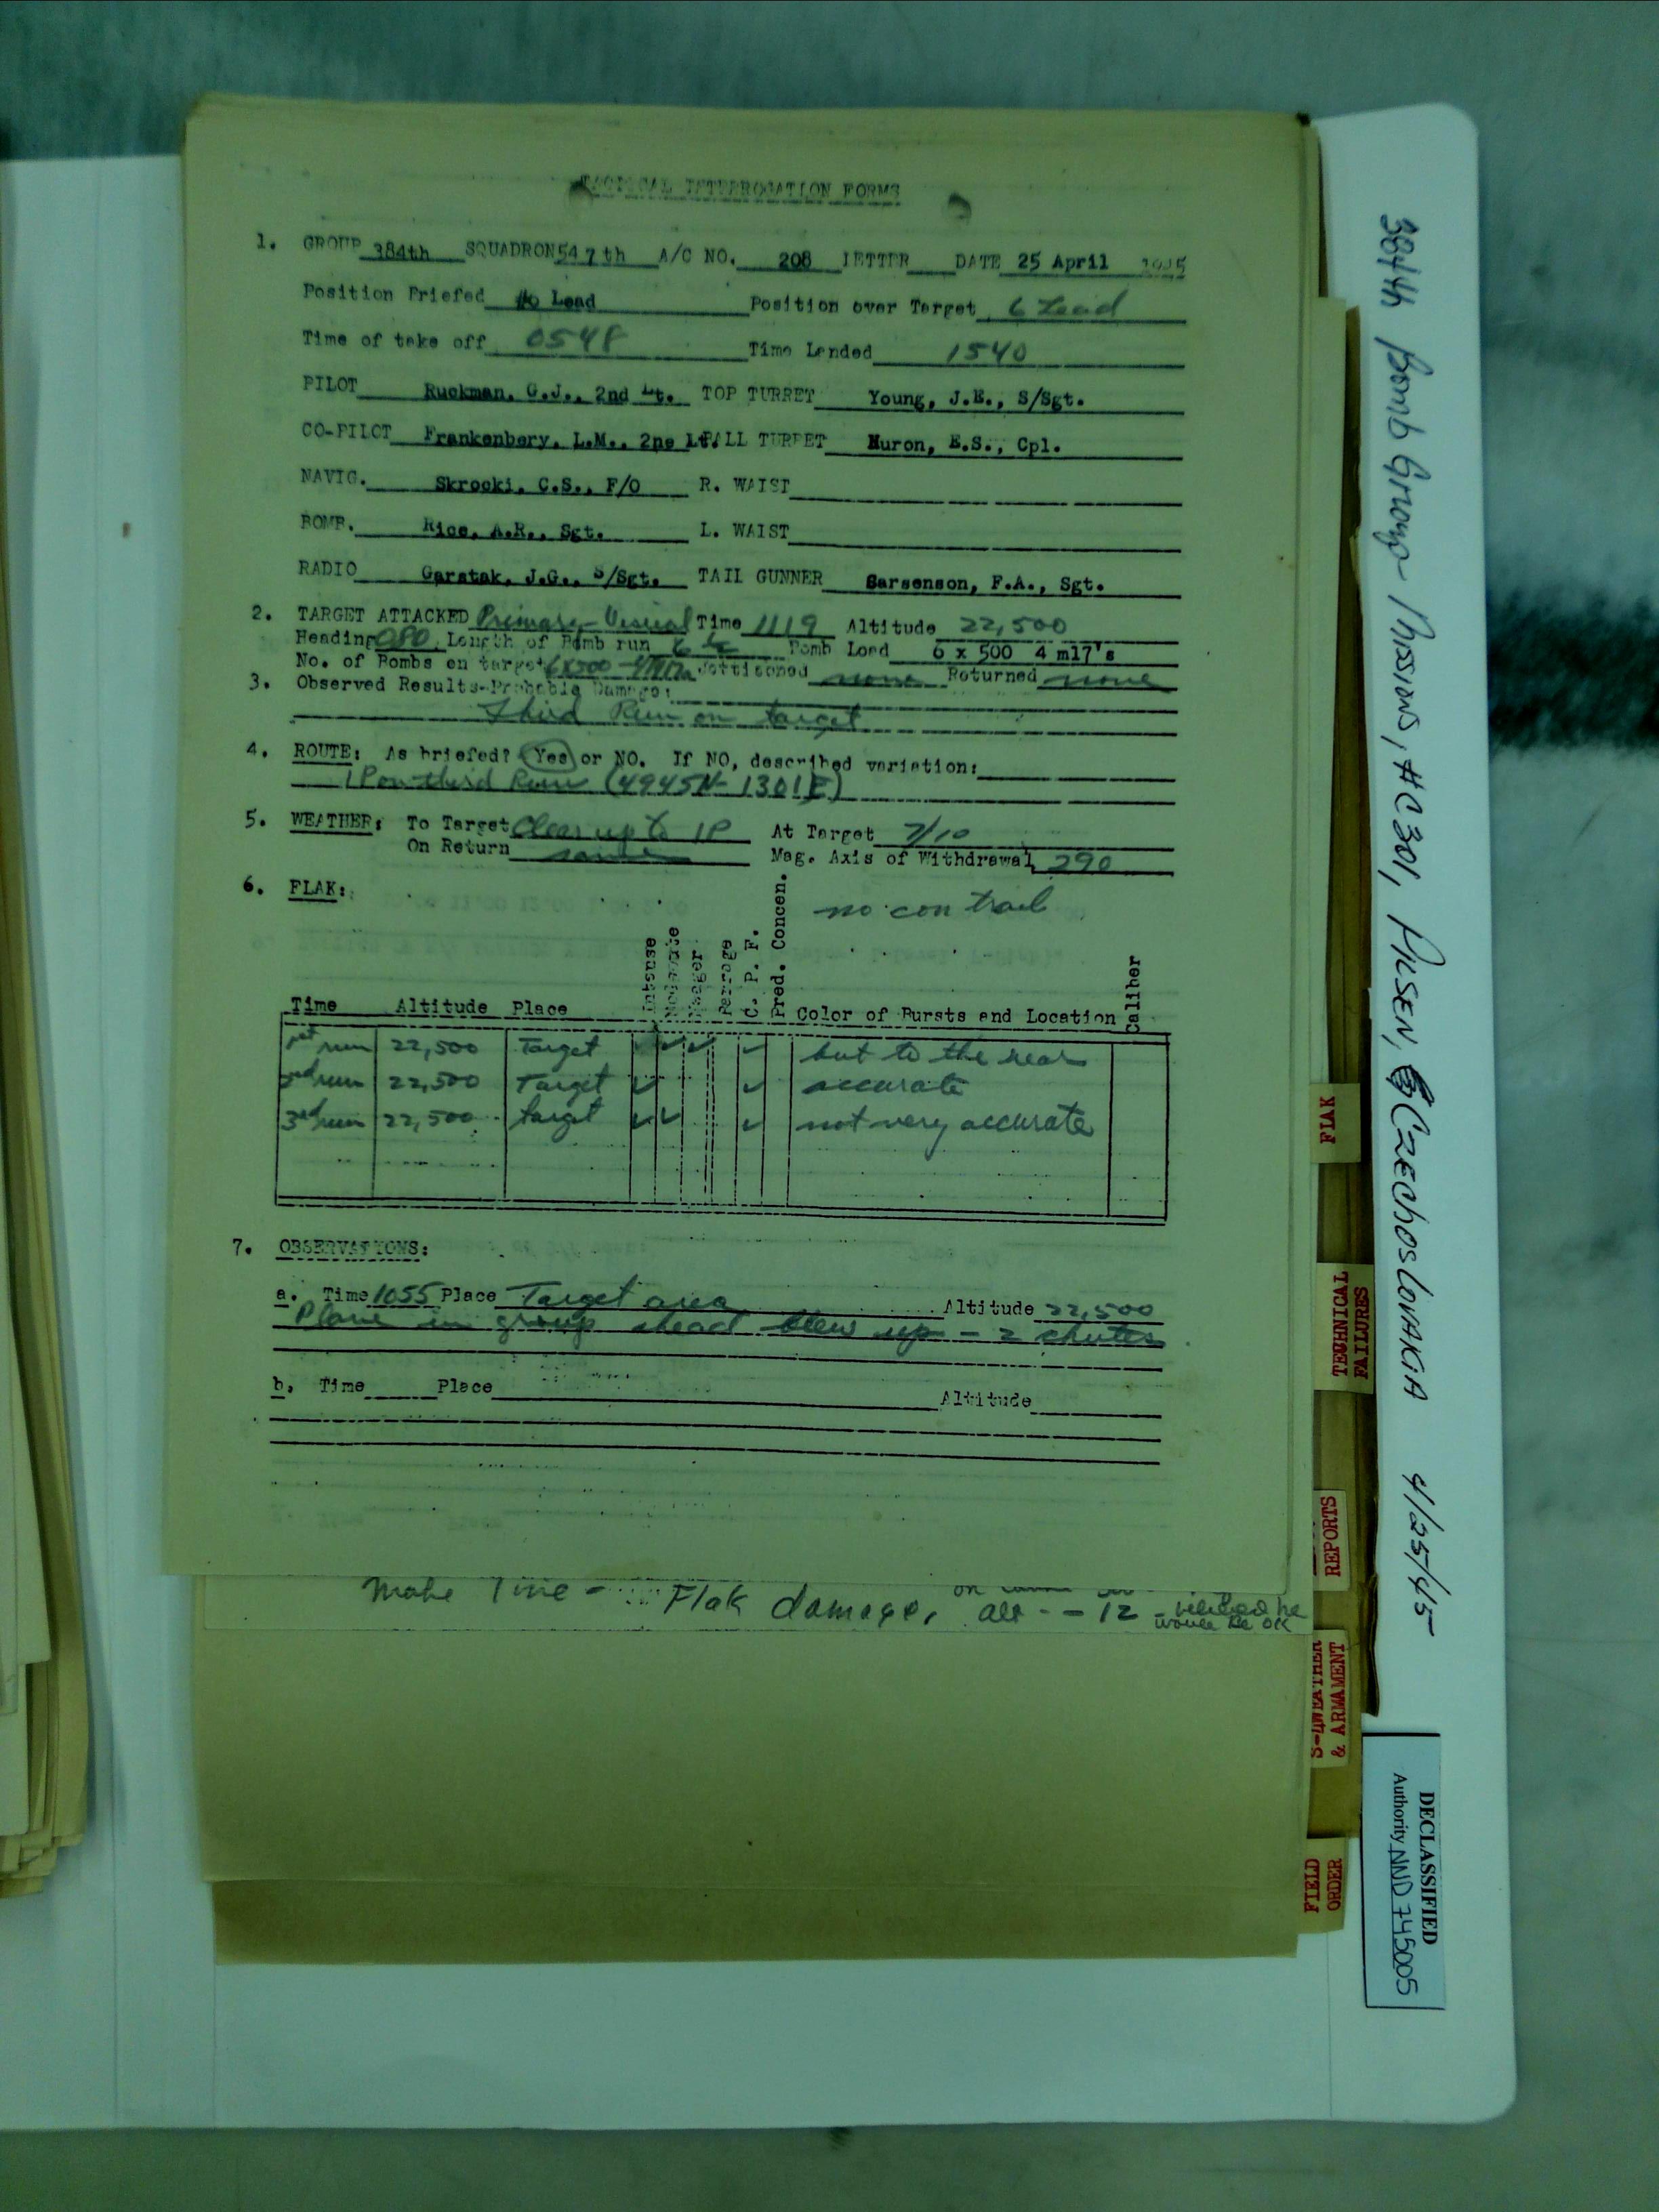 TACTICAL INTERROGATION FORMS
1. GROUP 384th SQUADRON 547th A/C NO. 208 LETTER DATE 25 April 1945
Position Briefed Lead Position over Target 6 Lead
Time of take off 0548 Time Landed 1540
PILOT Ruckman, G.J., 2nd Lt. TOP TURRET Young, J.E., S/Sgt.
CO-PILOT Frankenbery, L.M., 2ne Lt. BALL TURRET Huron, E.S., Cpl.
NAVIG. Skrocki, C.S., F/O R. WAIST
BOMB. Rice, A.R., Sgt. L. WAIST
RADIO Garstak, J.G., S/Sgt. TAIL GUNNER Sarsenson, F.A., Sgt.
2. TARGET ATTACKED Primary - Visual Time 1119 Altitude 22,500
Heading 080 Length of Bomb run 6 Bomb Load 6 x 500 4 m17's
No. of Bombs on target 6x500 Jettisoned none Returned none
3. Observed Results-Probable Damage:
Third Run on target
4. ROUTE: As briefed? Yes or NO. If NO, described variation:
IP on third Run (4945N- 1301E)
5. WEATHER: To Target Clear up to IP At Target 7/10
On Return same Mag. Axis of Withdrawal 290
6. FLAK: no con trail
Time Altitude Place Intense Moderate Meager Barrage C. P. F. Pred. Concen. Color of Bursts and Location Caliber
1st run 22,500 Target ✓ ✓ ✓ but to the rear
2nd run 22,500 Target ✓ ✓ accurate
3rd run 22,500 target ✓ ✓ ✓ not very accurate
7. OBSERVATIONS:
a. Time 1055 Place Target area Altitude 22,500
Plane in group ahead blew up - 2 chutes
b. Time Place Altitude
Make Time - Flak damage, on alt - - 12 - believed he
would be OK
384th Bomb Group Missions, #C301, PILSEN, CZEChosloVAKIA 4/25/45
FLAK
TECHNICAL
FAILURES
REPORTS
S-4 WEATHER
& ARMAMENT
FIELD
ORDER
DECLASSIFIED
Authority NND 745005